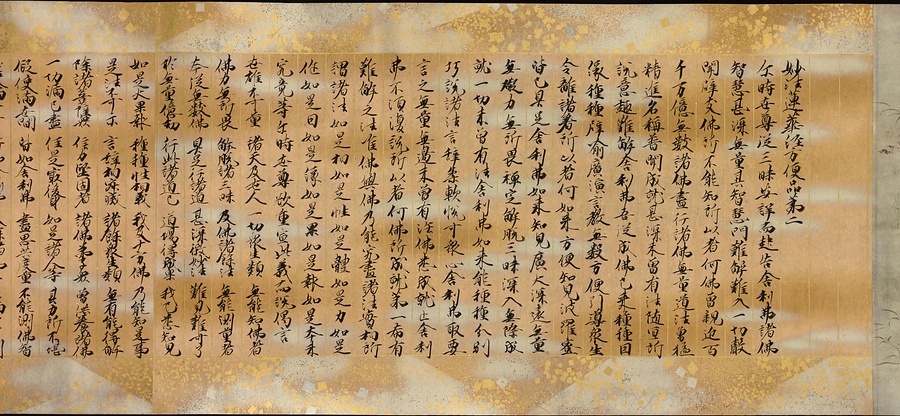 妙法蓮華經方便品第二
尒時世尊從三昧安詳而起告舍利弗諸佛
智慧甚深無量其智慧門難解難入一切聲
聞辟支佛所不能知所以者何佛曾親近百
千万億無數諸佛盡行諸佛無量道法勇猛
精進名稱普聞成就甚深未曾有法隨宜所
說意趣難解舍利弗吾從成佛已來種種因
緣種種譬喻廣演言教無數方便引導衆生
令離諸著所以者何如來方便知見波羅蜜
皆已具足舍利弗如來知見廣大深遠無量
無礙力無所畏禪定解脫三昧深入無際成
就一切未曾有法舍利弗如來能種種分別
巧說諸法言辭柔軟悅可衆心舍利弗取要
言之無量無邊未曾有法佛悉成就止舍利
弗不須復說所以者何佛所成就第一希有
難解之法唯佛與佛乃能究盡諸法實相所
謂諸法如是相如是性如是體如是力如是
作如是因如是緣如是果如是報如是本末
究竟等尒時世尊欲重宣此義而說偈言
世雄不可量 諸天及世人 一切衆生類 無能知佛者
佛力無所畏 解脫諸三昧 及佛諸餘法 無能測量者
本從無數佛 具足行諸道 甚深微妙法 難見難可了
於無量億劫 行此諸道已 道場得成果 我已悉知見
如是大果報 種種性相義 我及十方佛 乃能知是事
是法不可示 言辭相寂滅 諸餘衆生類 無有能得解
除諸菩薩衆 信力堅固者 諸佛弟子衆 曾供養諸佛
一切漏已盡 住是最後身 如是諸人等 其力所不堪
假使滿世間 皆如舍利弗 盡思共度量 不能測佛智